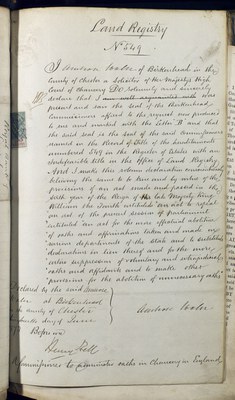 Land Registry
No 549
I Ambrose Waln of Birkenhead in the
County of Chester a Solicitor of Her Majesty's High
Court of Chancery Do solemnly and sincerely
declare that I was
present and saw the Seal of the Birkenhead
Commissioners affixed to the record now produced
to me and marked with the letter B and that
the said seal is the seal of the said Commissioners
named in the Record of Title of the hereditaments
numbered 549 in the Register of Estates with an
indefeasible title in the Office of Land Registry
And I make this solemn declaration conscientiously
believing the same to be true and by virtue of the
provisions of an act made and passed in the
sixth year of the Reign of his late Majesty King
William the fourth intituled "an act to repeal
an act of the present session of parliament
intituled an act for the more effectual abolition
of oaths and affirmations taken and made in
various departments of the State and to substitute
declarations in lieu thereof and for the more
entire suppression of voluntary and extrajudicial
oaths and affidavits and to make other
provisions for the abolition of unnecessary oaths"
Declared by the said Ambrose
at Birkenhead
the county of Chester
day of June
Before me
Henry Hall
Commissioner to administer oaths in Chancery in England